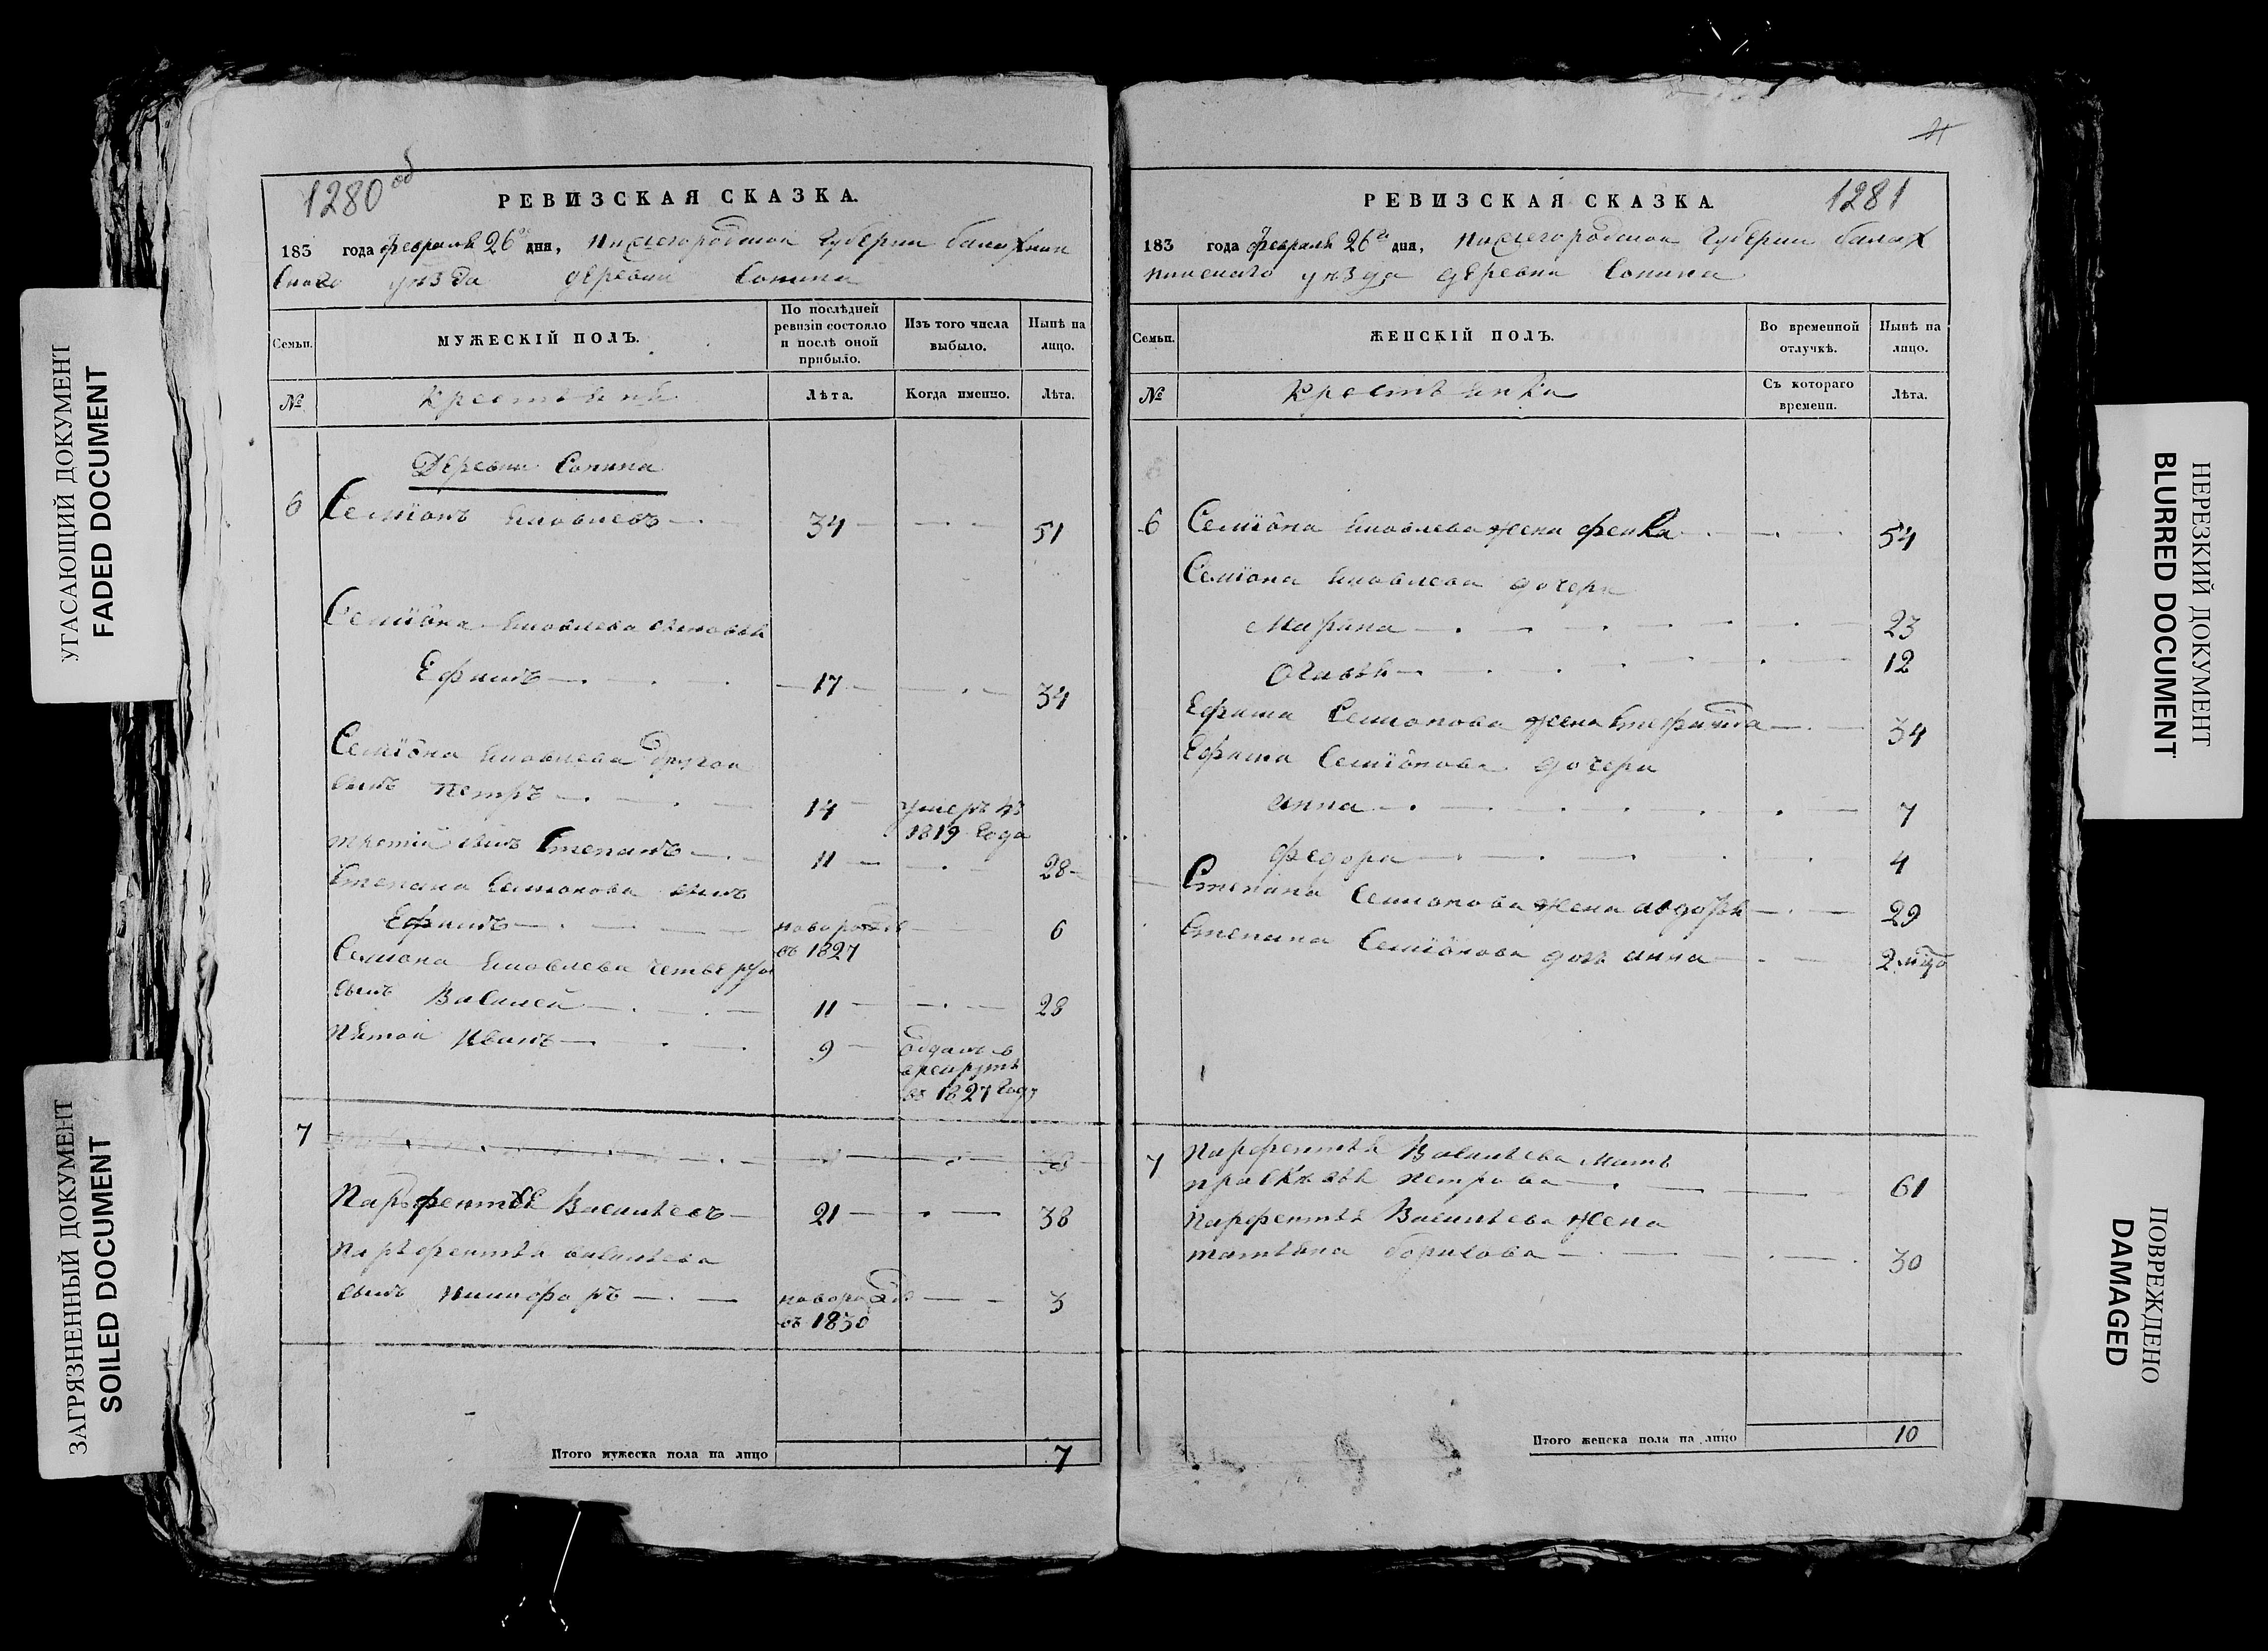 УГАСАЮЩИЙ ДОКУМЕНТ
FADED DOCUMENT
ЗАГРЯЗНЕННЫЙ ДОКУМЕНТ
SOILED DOCUMENT
1280 об
РЕВИЗСКАЯ СКАЗКА.
183 года февраля 26 дня, Нижегородской губернии Балахнин
скаго уѣзда деревни Сонина
Семьи. МУЖЕСКІЙ ПОЛЪ. По послѣдней ревизіи состояло и послѣ оной прибыло. Изъ того числа выбыло. Нынѣ на лицо.
№ Крестьяне Лѣта. Когда именно. Лѣта.
Деревни Сонина
6 Семіонъ Яковлевъ 34 51
Семіона Яковлева сыновья
Ефимъ 17 34
Семіона Яковлева другой
сынъ Петръ 14 умеръ
1819 года
третій сынъ Степанъ 11 28
Степана Семионова сынъ
Ефимъ новорожд 6
въ 1827
Семиона Яковлева четвертой
сынъ Василей 11 28
пятой Иванъ 9 отданъ в
рекруты
въ 1827 году
7
Парфентей Васильевъ 21 38
Парфентья Васильева
сынъ Никифоръ новорожд 3
въ 1830
Итого мужеска пола на лицо 7
1281
РЕВИЗСКАЯ СКАЗКА.
183 года февраля 26 дня, Нижегородской губернии Балах
нинскаго уѣзда деревни Сонина
Семьи. ЖЕНСКІЙ ПОЛЪ. Во временной отлучкѣ. Нынѣ на лицо.
№ Крестьянки Съ котораго времени. Лѣта.
6 Семіона Яковлева жена 54
Семіона Яковлева дочери
Марина 23
12
Ефима Семионова жена 34
Ефима Семіонова дочери
Анна 7
Федора 4
Степана Семионова жена Авдотья 29
Степана Семіонова дочь Анна 2
7 Парфентья Васильева мать
Прасковья Петрова 61
Парфентья Васильева жена
Татьяна Борисова 30
Итого женска пола на лицо 10
НЕРЕЗКИЙ ДОКУМЕНТ
BLURRED DOCUMENT
ПОВРЕЖДЕНО
DAMAGED